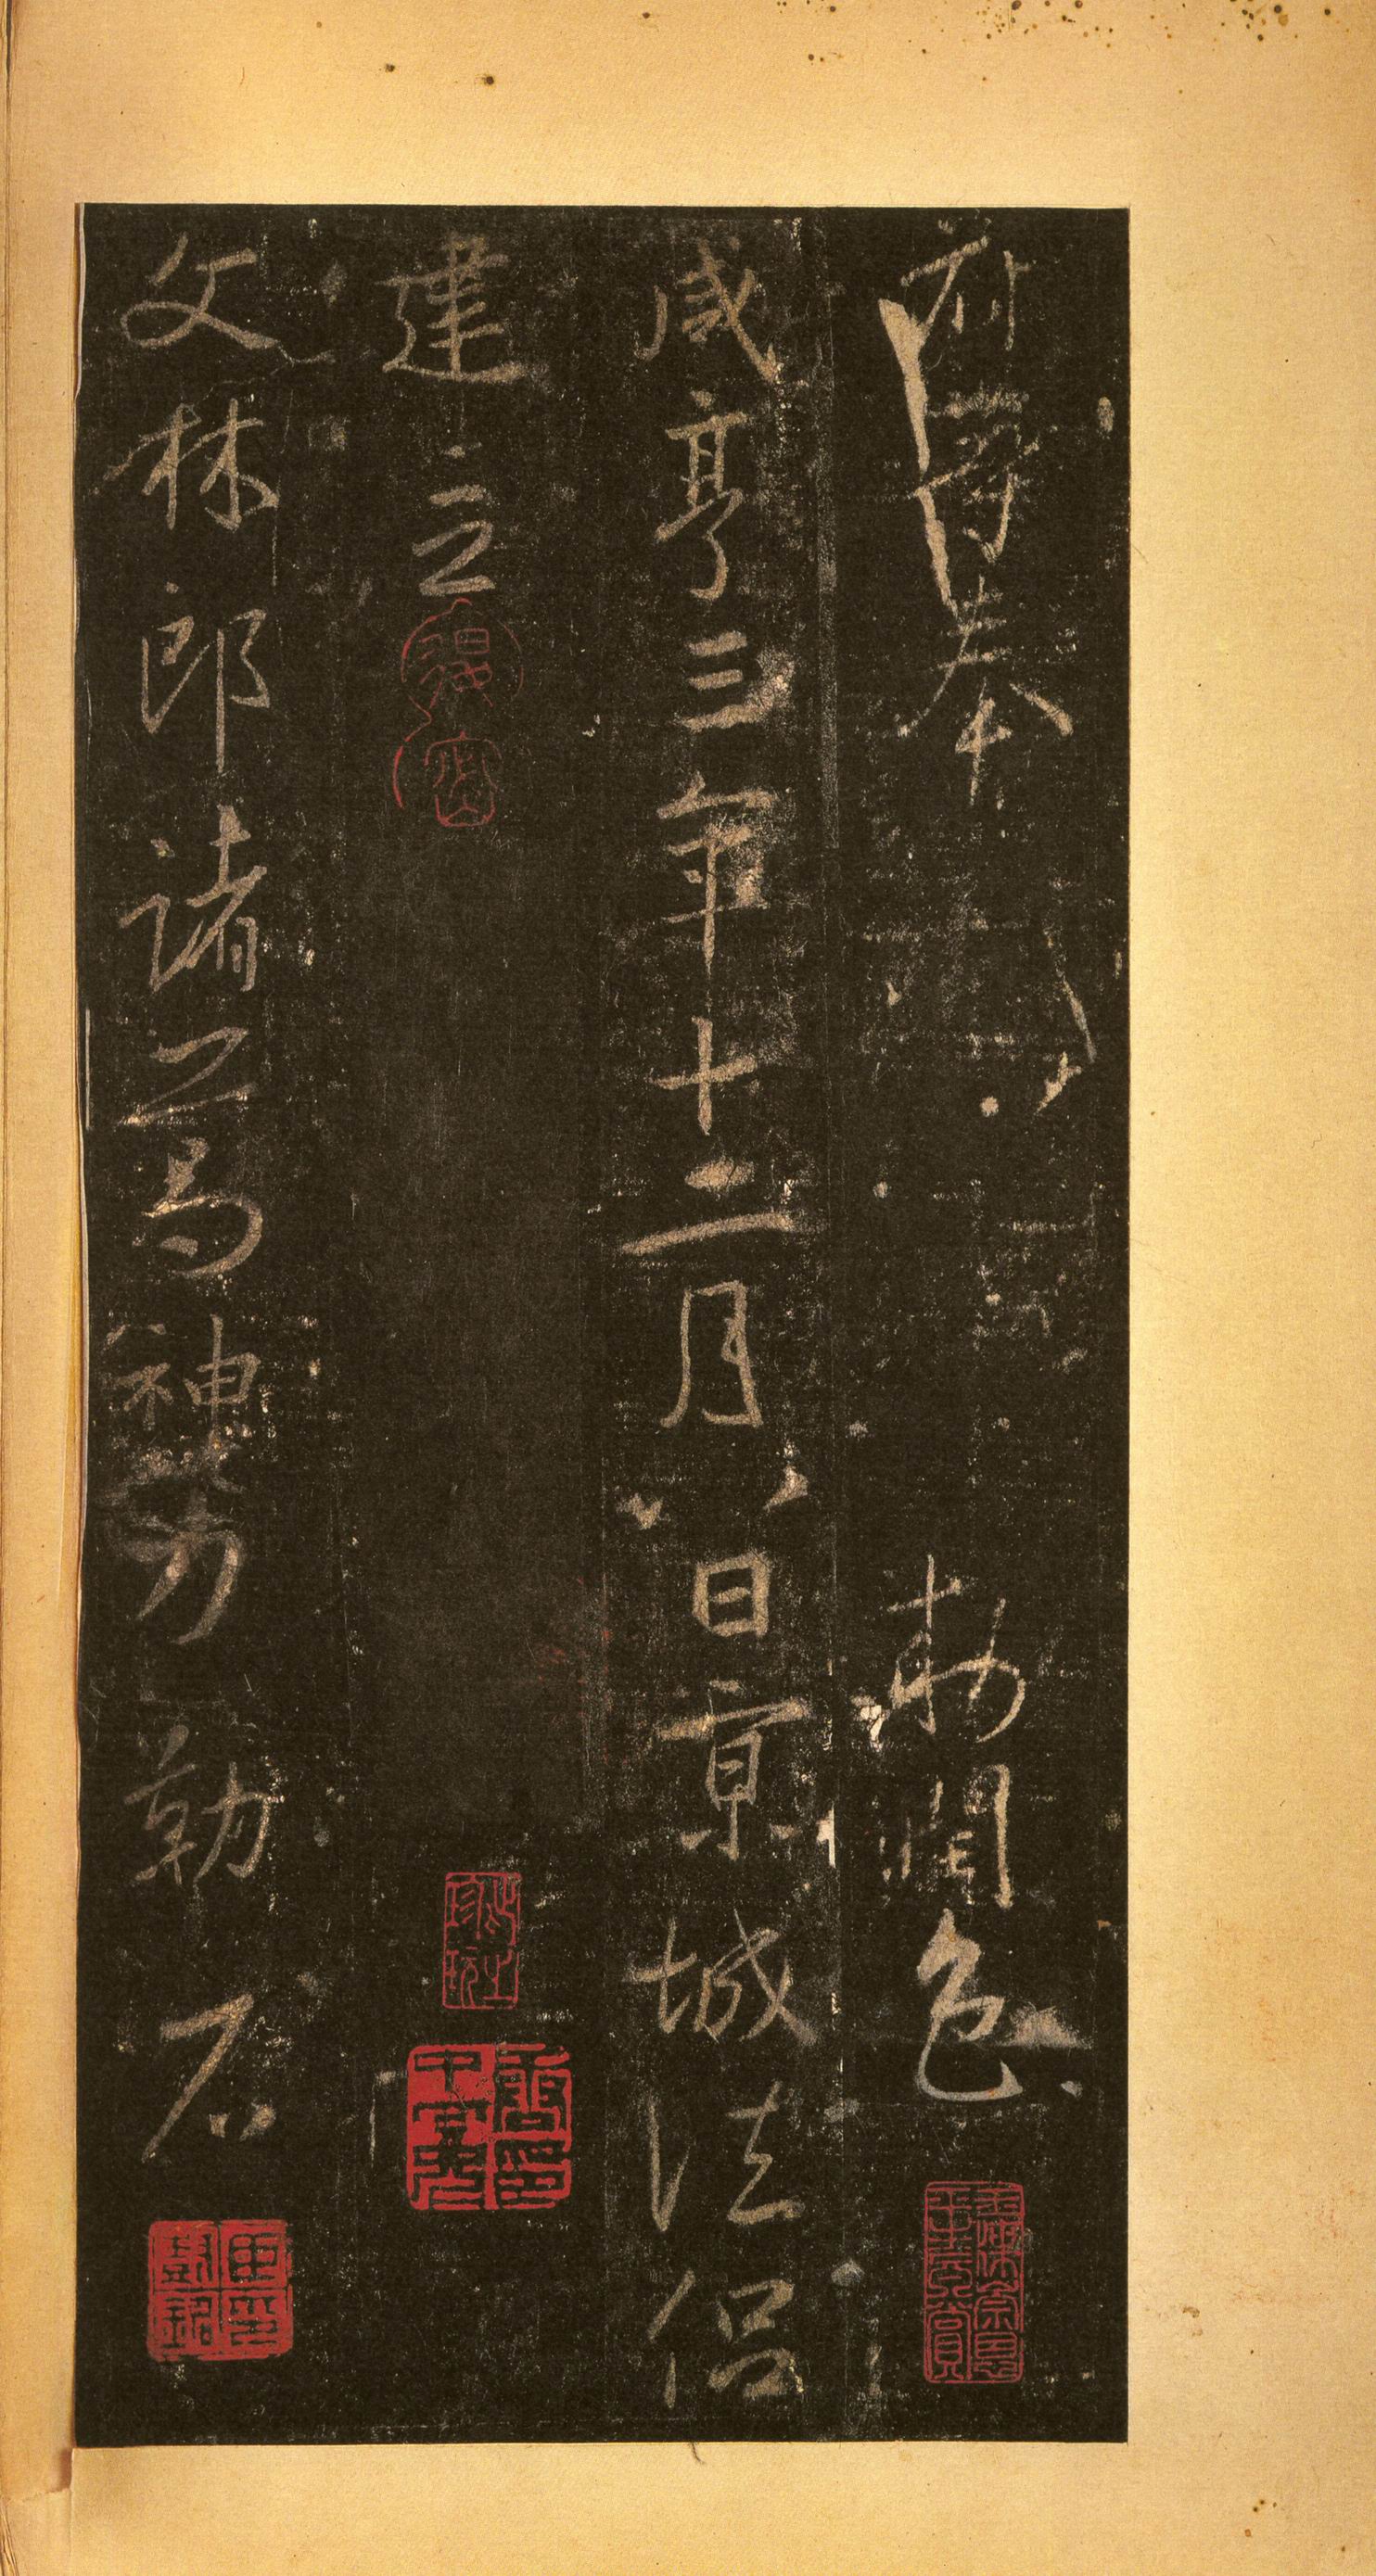 府等奉　　敕潤色
咸亨三年十二月八日京城法侶
建立
文林郎諸葛神力勒石